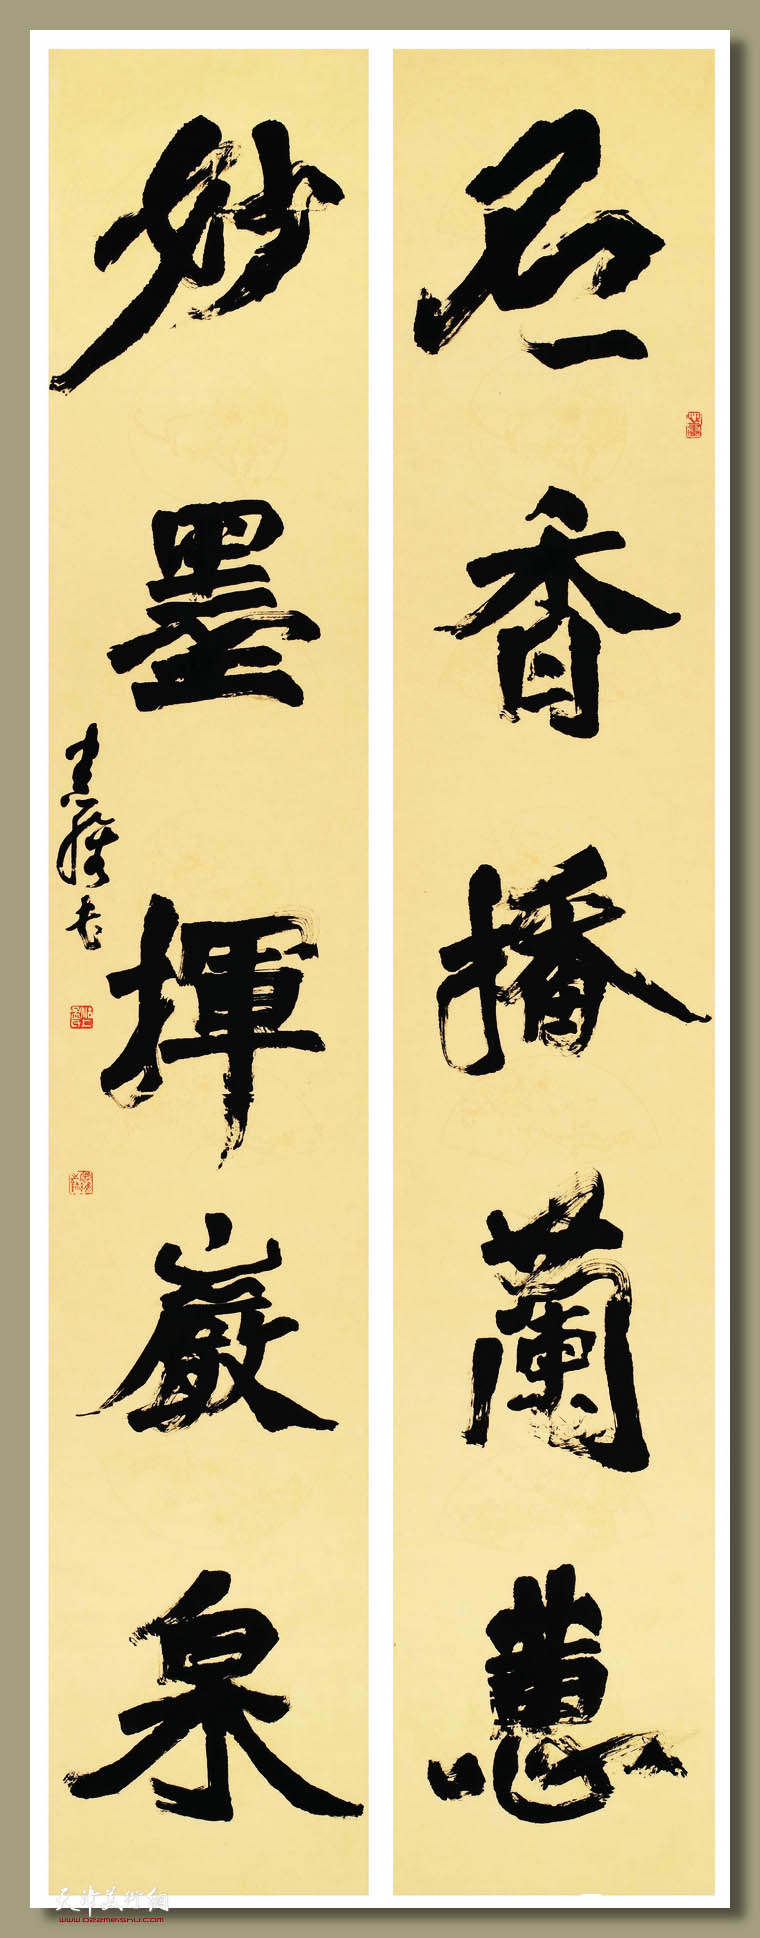 名香播蘭蕙
妙墨揮巖泉
天津美術網
www.022meishu.com